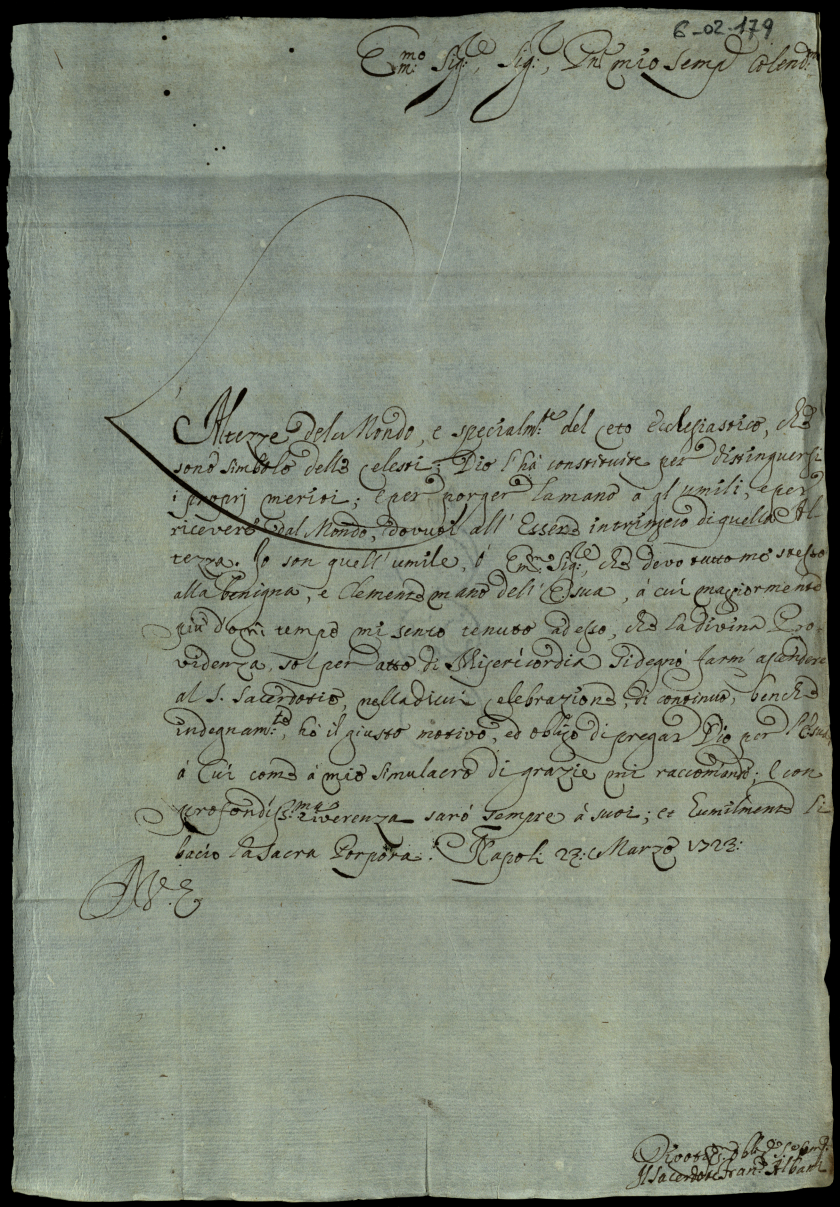 6-02-179
Em:mo Sig:re, Sig:re, Pn̄e mio semp̄ Colend:mo
Altezze del Mondo, e specialm:te del ceto Ecclesiastico, che
sono simbolo delle celesti; Dio l'hà constituite per distinguersi
i proprj meriti; e per porger la mano à gl'umili, e per
ricevere dal Mondo, dovuti all'Essere intrinseco di quella Al
tezza. Io son quell'umile, ò Em:mo Sig:re, che devo tutto me stesso
alla benigna, e Clemente mano dell'E. sua, à cui maggiormente
più d'ogni tempo mi sento tenuto adesso, che la divina Pro-
videnza, sol per atto di Misericordia si degnò farmi ascendere
al S. Sacerdotio, nella di cui celebrazione, di continuo, benche
indegnam:te, hò il giusto motivo, ed obligo di pregar Dio per l'E. sua,
à cui come à mio simulacro di grazie mi raccomando; e con
profondiss:ma riverenza sarò sempre à suoi; et humilmente li
bacio la sacra Porpora. Napoli 23: Marzo 1723:
Divotis:
Il Sacerdote Fran:co Albani